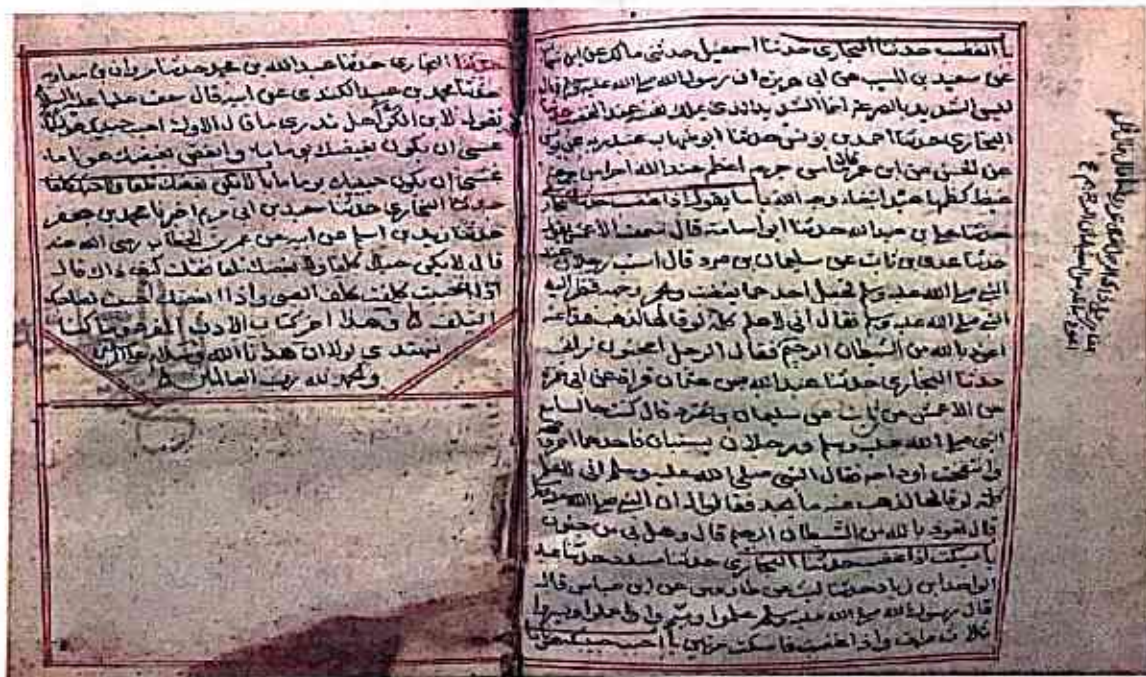 باب الغضب حدثنا البخاري حدثنا اسمعيل حدثني مالك عن ابن شهاب
عن سعيد بن المسيب عن ابي هريرة ان رسول الله صلى الله عليه وسلم قال
ليس الشديد بالصرعة انما الشديد الذي يملك نفسه عند الغضب حدثنا
البخاري حدثنا احمد بن يونس حدثنا ابو شهاب عبد ربه عن يونس
عن الحسن عن ابن عمر قال ما من جرعة اعظم عند الله اجرا من جرعة
غيظ كظمها عبد ابتغاء وجه الله باب ما يقول اذا غضب حدثنا البخاري
حدثنا علي بن عبد الله حدثنا ابو اسامة قال سمعت الاعمش يقول
حدثنا عدي بن ثابت عن سليمان بن صرد قال استب رجلان عند
النبي صلى الله عليه وسلم فجعل احدهما يغضب ويحمر وجهه فنظر اليه
النبي صلى الله عليه وسلم فقال اني لاعلم كلمة لو قالها لذهب هذا عنه
اعوذ بالله من الشيطان الرجيم فقال الرجل امجنون تراني
حدثنا البخاري حدثنا عبد الله بن عثمان قراة عن ابي حمزة
عن الاعمش عن ثابت عن سليمان بن صرد قال كنت جالسا مع
النبي صلى الله عليه وسلم ورجلان يستبان فاحدهما احمر وجهه
وانتفخت اوداجه فقال النبي صلى الله عليه وسلم اني لاعلم
كلمة لو قالها لذهب عنه ما يجد فقالوا له ان النبي صلى الله عليه وسلم
قال تعوذ بالله من الشيطان الرجيم قال وهل بي من جنون
باب يسكت اذا غضب حدثنا البخاري حدثنا مسدد حدثنا عبد
الواحد بن زياد حدثنا ليث عن طاوس عن ابن عباس قال
قال رسول الله صلى الله عليه وسلم علموا ويسروا علموا ويسروا
ثلاث مرات واذا غضبت فاسكت مرتين باب احبب حبيبك هونا
حدثنا البخاري حدثنا عبد الله بن محمد حدثنا مروان بن معاوية
حدثنا محمد بن عبيد الكندي عن ابيه قال سمعت عليا عليه السلام
يقول لابن الكوا هل تدري ما قال الاول احبب حبيبك هونا ما
عسى ان يكون بغيضك يوما ما وابغض بغيضك هونا ما
عسى ان يكون حبيبك يوما ما باب لا يكن بغضك تلفا ولا حبك كلفا
حدثنا البخاري حدثنا سعيد بن ابي مريم اخبرنا محمد بن جعفر
حدثنا زيد بن اسلم عن ابيه عن عمر بن الخطاب رضي الله عنه
قال لا يكن حبك كلفا ولا بغضك تلفا فقلت كيف ذاك قال
اذا احببت كلفت كلف الصبي واذا ابغضت احببت لصاحبك
التلف وهذا اخر كتاب الادب المفرد وما كنا
لنهتدي لولا ان هدانا الله
والحمد لله رب العالمين